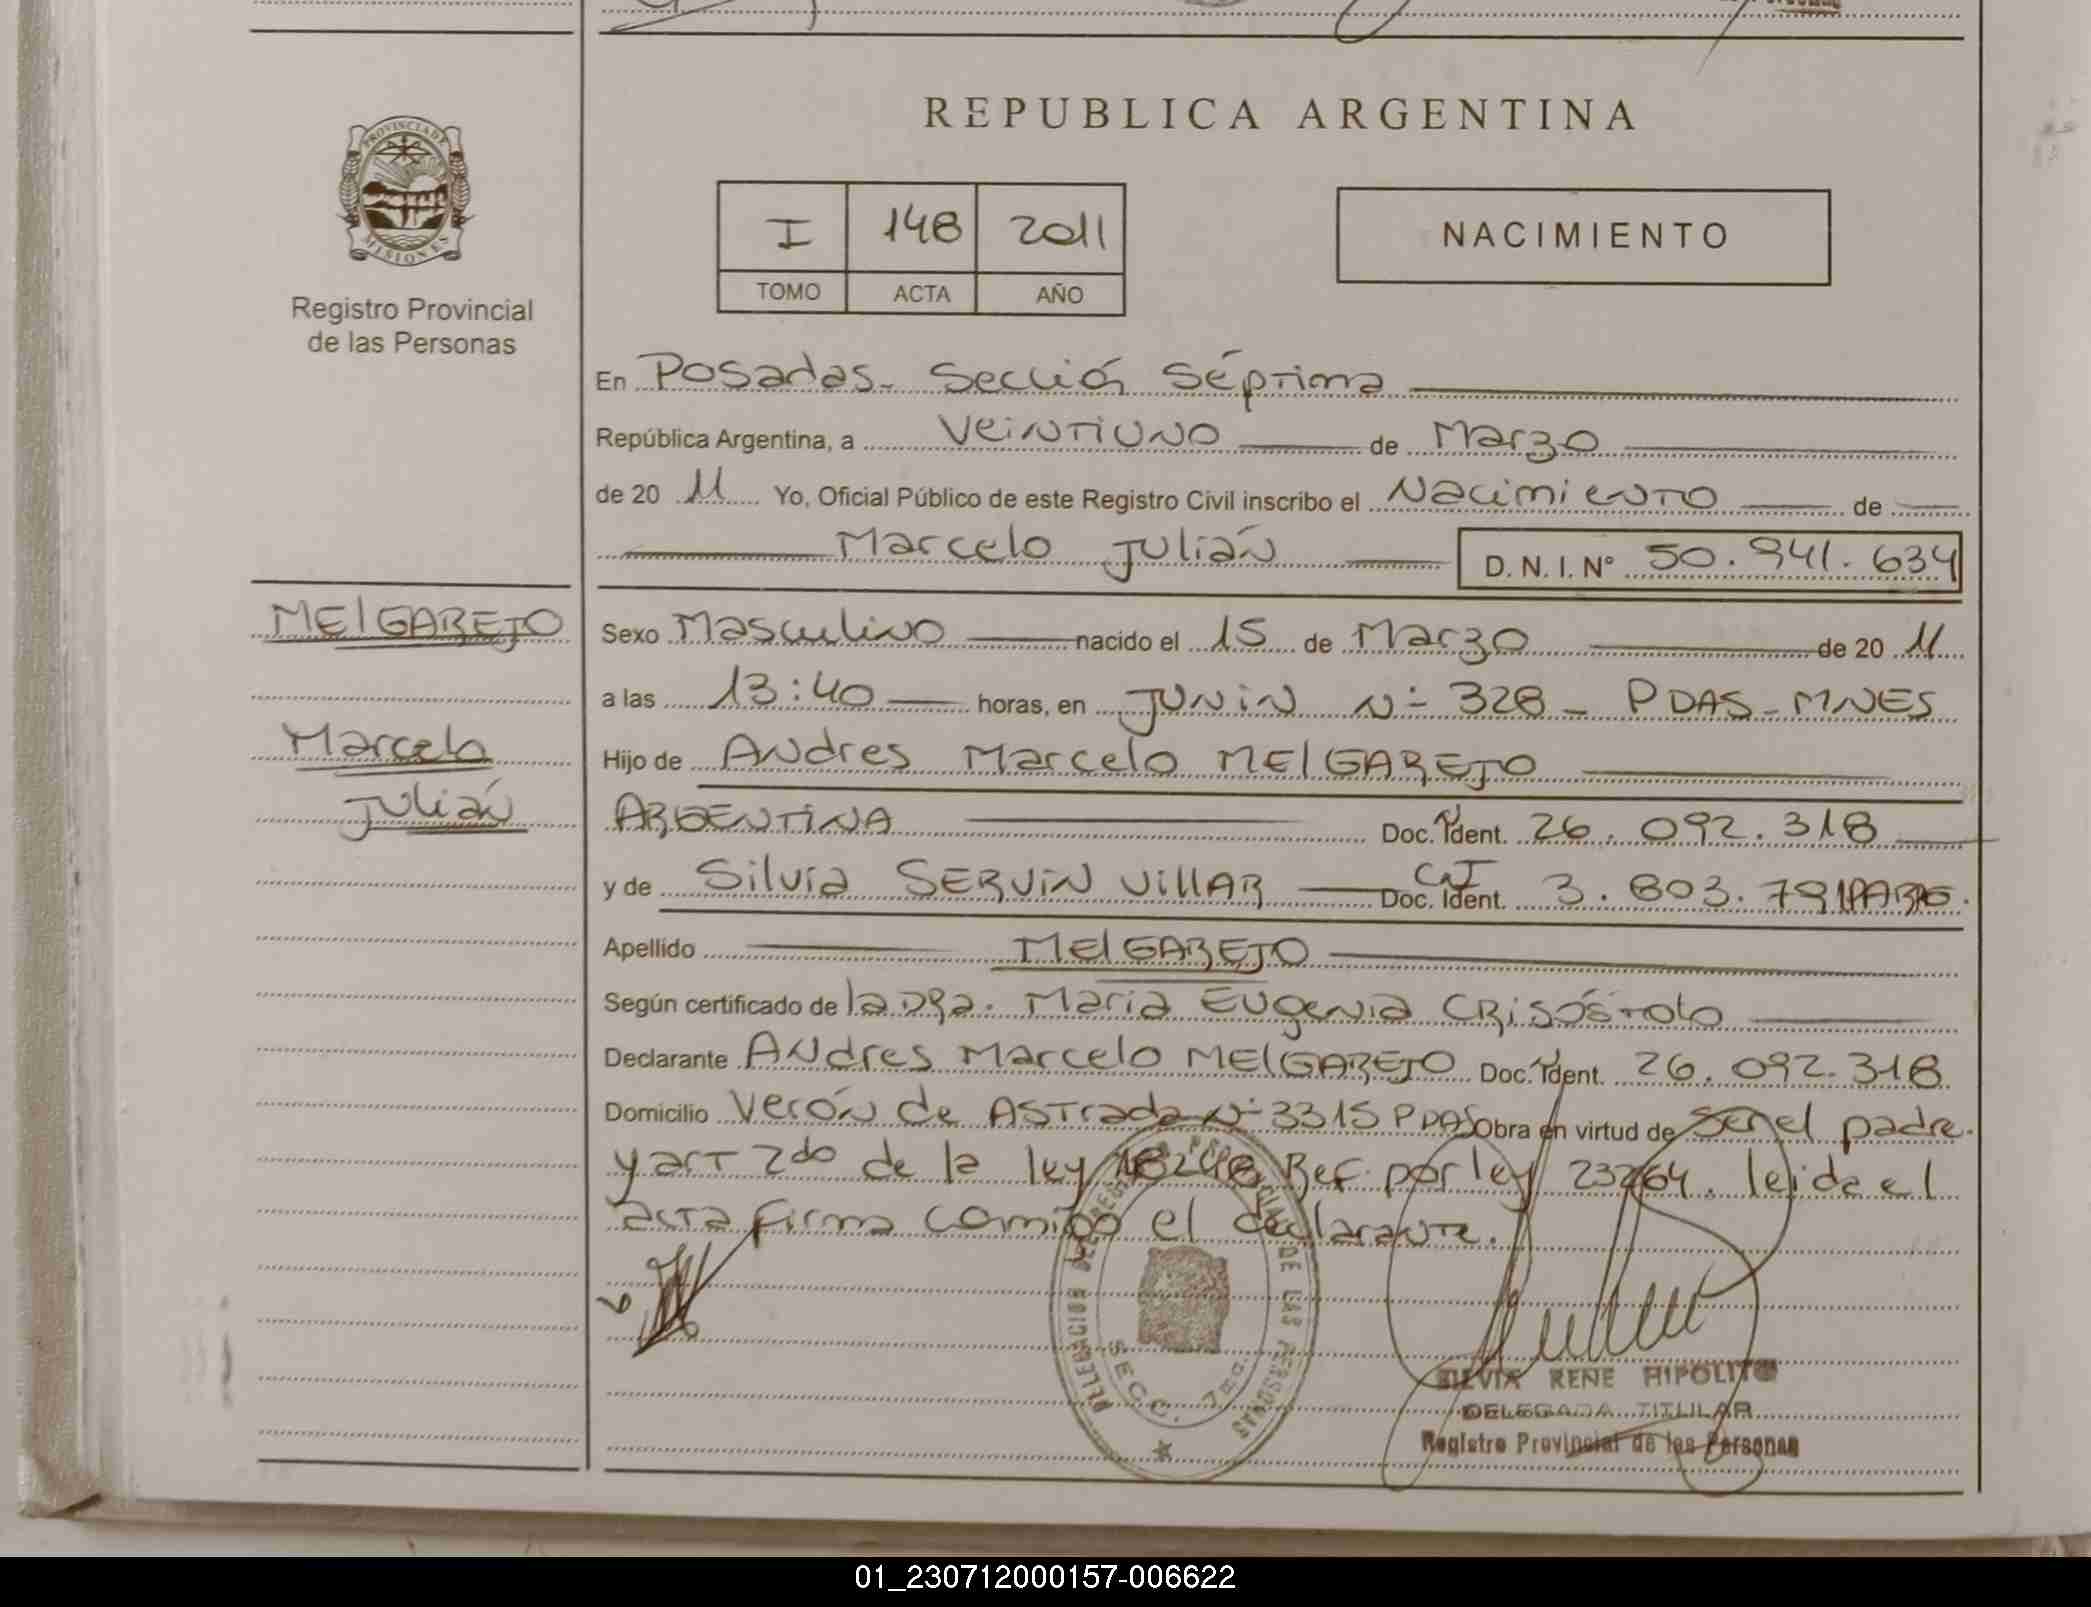 REPUBLICA ARGENTINA
PROVINCIA DE
MISIONES
Registro Provincial
de las Personas
I 148 2011
TOMO ACTA AÑO
NACIMIENTO
En Posadas - Sección Séptima
República Argentina, a Veintiuno de Marzo
de 20 11 Yo, Oficial Público de este Registro Civil inscribo el Nacimiento de
Marcelo Julián D. N. I. Nº 50.941.634
MElGAREJO
Marcelo
Julián
Sexo Masculino nacido el 15 de Marzo de 20 11
a las 13:40 horas, en JUNiN Nº 328 - PDAS - MNES
Hijo de Andres Marcelo MElGAREJO
ARGENTiNA Doc. Ident. 26.092.318
y de Silvia SERViN VillAR CI Doc. Ident. 3.803.791
Apellido MElGAREJO
Según certificado de la DRa. Maria Eugenia CRisóstolo
Declarante Andres Marcelo MElGAREJO Doc. Ident. 26.092.318
Domicilio Verón de Astrada Nº 3315 PDAS Obra en virtud de ser el padre.
y art 2do de la ley 18248 Ref. por ley 23264. leida el
acta firma comigo el declarante.
DELEGACION DEL REGISTRO PROVINCIAL DE LAS PERSONAS
SECC. 7ma.
SILVIA RENE HIPOLITO
DELEGADA TITULAR
Registro Provincial de las Personas
01_230712000157-006622